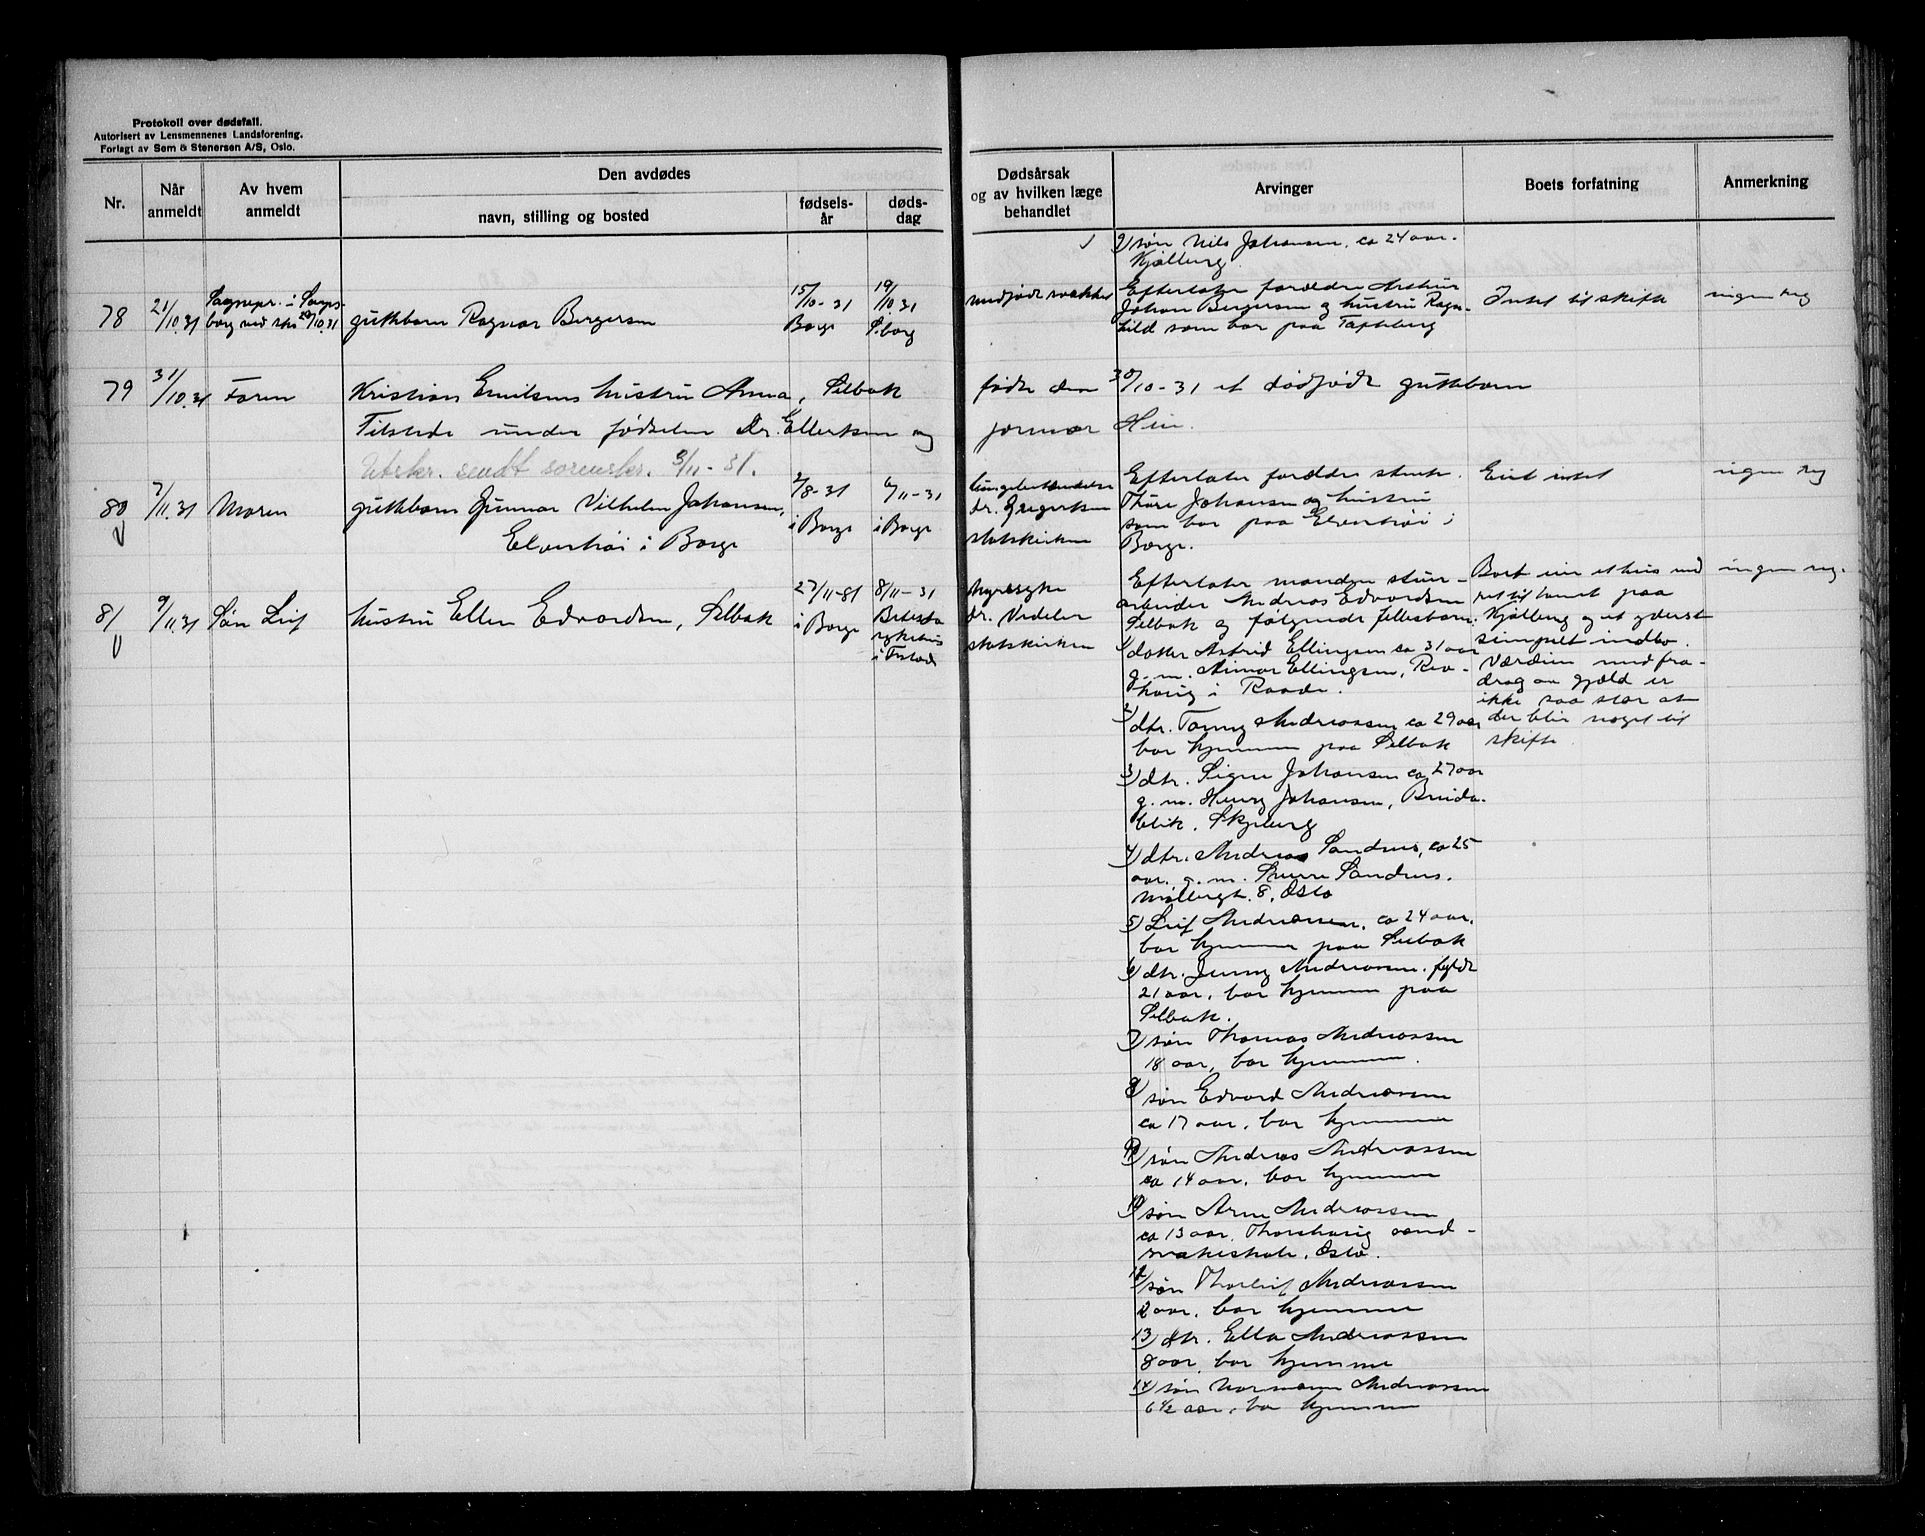 Protokoll over dødsfall.
Autorisert av Lensmennenes Landsforening.
Forlagt av Sem & Stenersen A/S, Oslo.
Nr.
Når
anmeldt
Av hvem
anmeldt
Den avdødes
navn, stilling og bosted
fødsels-
år
døds-
dag
Dødsårsak
og av hvilken læge
behandlet
Arvinger
Boets forfatning
Anmerkning
2) søn Nils Johansen, ca 24 aar.
Kjølberg.
78
21/10.31
Sognepr. i Sarps-
borg ved skr 20/10.31
guttbarn Ragnar Bergersen
15/10-31
Borge
19/10.31
S.borg
medfødt svakhet
Efterlater forældre Arthur
Johan Bergersen og hustru Ragn-
hild som bor paa Tappeberg
Intet til skifte
ingen
79
31/10.31
Faren
Kristian Emilsens hustru Anna, Selbak
fødte den 30/10-31 et dødfødt guttbarn
Tilstede under fødselen Dr. Ellertsen og
jormor Hein.
Utskr. sendt sorenskr. 3/11-31.
80
7/11.31
Moren
guttbarn Gunnar Vilhelm Johansen,
Elvestrøi i Borge
2/8-31
i Borge
6/11-31
i Borge
lungebetændelse
dr. Gregertsen
statskirken
Efterlater forældre
Thure Johansen og hustru
som bor paa
Borge.
Eiet intet
ingen
81
9/11.31
Søn Leif
hustru Ellen Edvardsen, Selbak
27/11-81
i Borge
8/11-31
sykehus
i Fr.stad
Nyresyke
dr. Vedeler
statskirken
Efterlater manden sten-
arbeider Andreas Edvardsen
Selbak og følgende fellesbarn:
1) datter Astrid Ellingsen ca 31 aar
g.m. Aimar Ellingsen, Rea-
haug i Raade.
2) dtr. Fanny Andreassen ca 29 aar
bor hjemme paa Selbak
3) dtr. Signe Johansen ca 27 aar
g.m. Henry Johansen, Breida-
blik, Skjeberg
4) dtr. Andrea Sandnes, ca 25
aar. g.m. Sverre Sandnes.
Møllergt. 8, Oslo
5) Leif Andreassen, ca 24 aar,
bor hjemme paa Selbak
6) dtr. Jenny Andreassen. fyldt
21 aar, bor hjemme paa
Selbak.
7) søn Thomas Andreassen
18 aar, bor hjemme.
8) søn Edvard Andreassen
ca 17 aar, bor hjemme
9) søn Andreas Andreassen
ca 14 aar, bor hjemme
søn Arne Andreassen
ca 13 aar, Thorshaug aand-
svakeskole, Oslo.
12) søn Thorleif Andreassen
aar, bor hjemme
13) dtr. Ella Andreassen
8 aar, bor hjemme
14) søn Normann Andreassen
6 1/2 aar, bor hjemme
Boet eier et hus med
ret til tomt paa
Kjølberg og et yderst
simpelt indbo.
Værdien med fra-
drag av gjæld er
ikke saa stor at
der blir noget til
skifte.
ingen